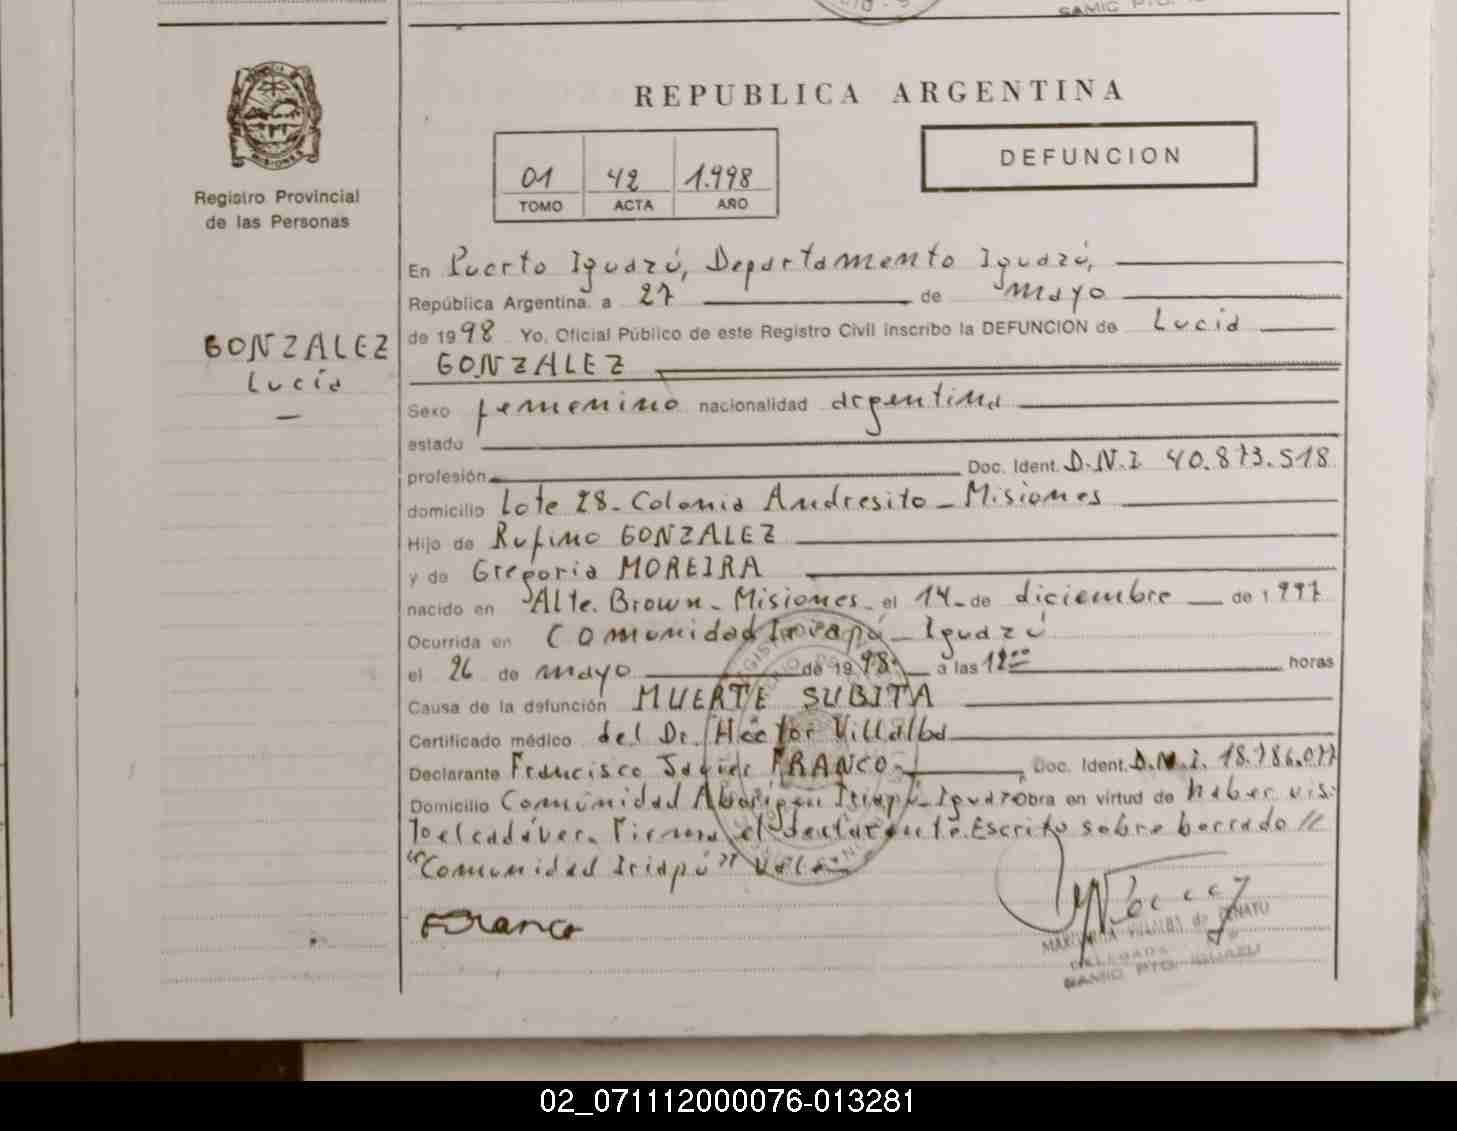 SAMIC PTO.
REPUBLICA ARGENTINA
MISIONES
Registro Provincial
de las Personas
01 42 1.998
TOMO ACTA AÑO
DEFUNCION
GONZALEZ
Lucía
—
En Puerto Iguazú, Departamento Iguazú,
República Argentina a 27 de mayo
de 1998 Yo, Oficial Público de este Registro Civil inscribo la DEFUNCION de Lucía
GONZALEZ
Sexo femenino nacionalidad argentina
estado
profesión Doc. Ident. D.N.I 40.873.518
domicilio Lote 28- Colonia Andresito - Misiones
Hijo de Rufino GONZALEZ
y de Gregoria MOREIRA
nacido en Alte. Brown - Misiones - el 14 - de diciembre de 1997
Ocurrida en Comunidad Iriapú - Iguazú
el 26 de mayo de 1998 - a las 12⁰⁰ horas
Causa de la defunción MUERTE SUBITA
Certificado médico del Dr. Héctor Villalba
Declarante Francisco Javier FRANCO - Doc. Ident. D.N.I. 18.786.077
Domicilio Comunidad Aborigen Iriapú - Iguazú Obra en virtud de haber vis-
to el cadáver. Firma el declarante. Escrito sobre borrado //
"Comunidad Iriapú" Vale
Franco
MARGARITA VILLALBA de
DELEGADA
SAMIC PTO. IGUAZU
02_071112000076-013281